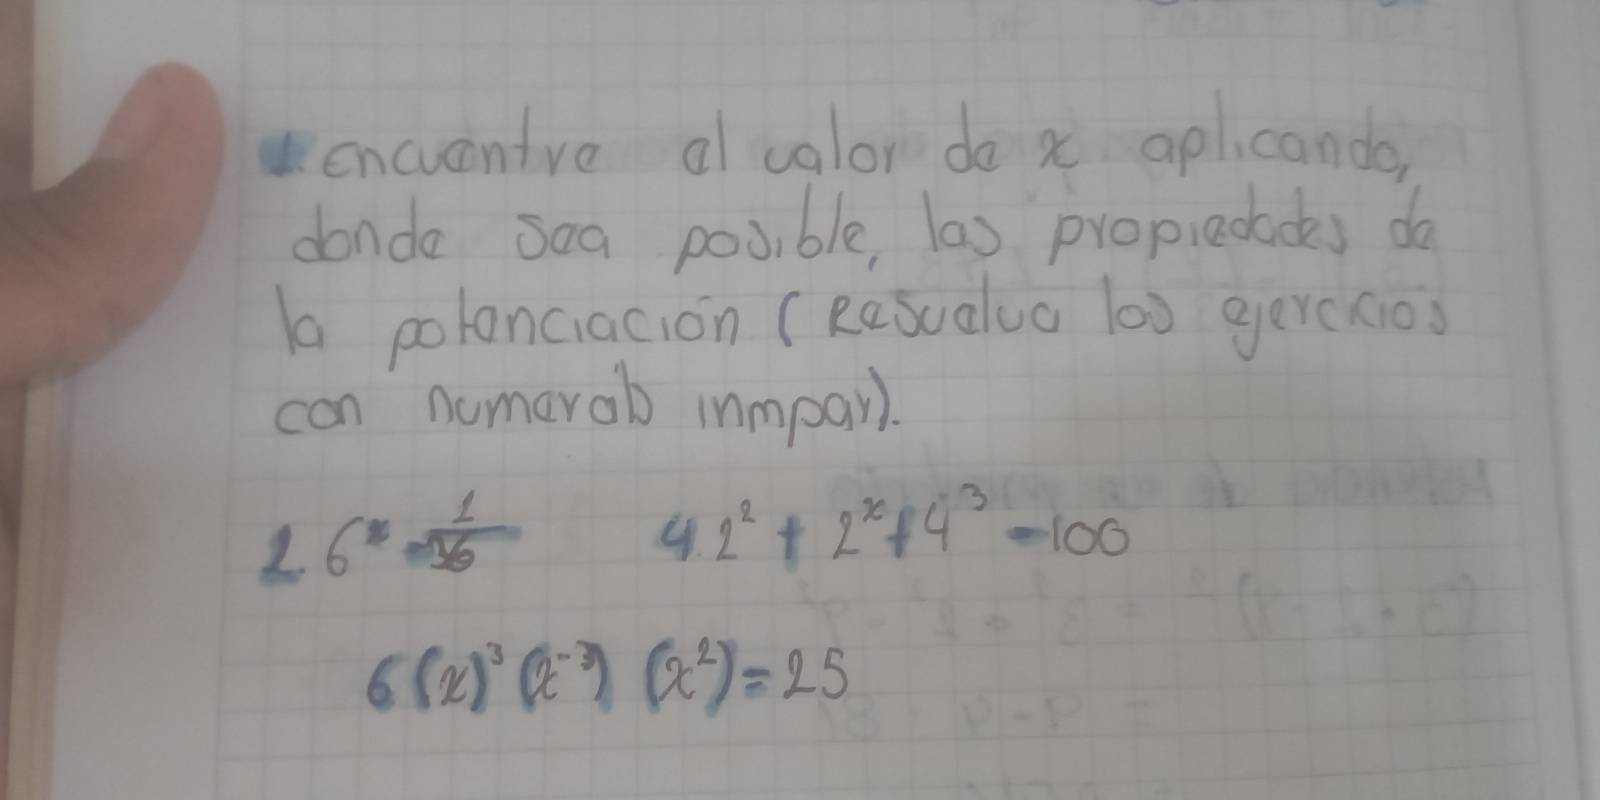 1. encuentre el valor de x aplicando,
donde sea posible, las propiedades de
la potenciación (Resuelva los ejercicios
con numerab inmpar).
2. 6ˣ = 1/36 4. 2² + 2ˣ + 4³ = 100
6 (x)³ (x⁻³) (x²) = 25